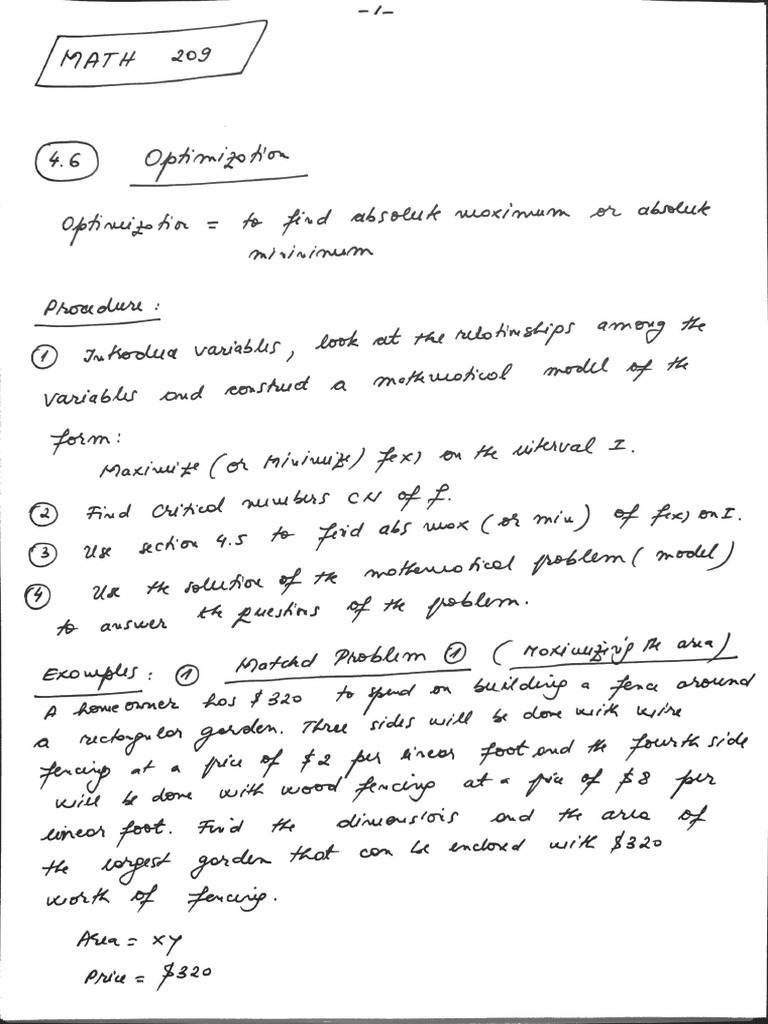 -1-
MATH 209
4.6 Optimization
Optimization = to find absolute maximum or absolute
minininum
Procedure:
1 Introduce variables, look at the relationships among the
variables and construct a mathematical model of the
form:
Maximize (or Minimize) f(x) on the interval I.
2 Find Critical numbers CN of f.
3 Use section 4.5 to find abs max (or min) of f(x) on I.
4 Use the solution of the mathematical problem (model)
to answer the questions of the problem.
Examples: 1 Matched Problem 1 (Maximizing the area)
A homeowner has $320 to spend on building a fence around
a rectangular garden. Three sides will be done with wire
fencing at a price of $2 per linear foot and the fourth side
will be done with wood fencing at a price of $8 per
linear foot. Find the dimensions and the area of
the largest garden that can be enclosed with $320
worth of fencing.
Area = xy
Price = $320